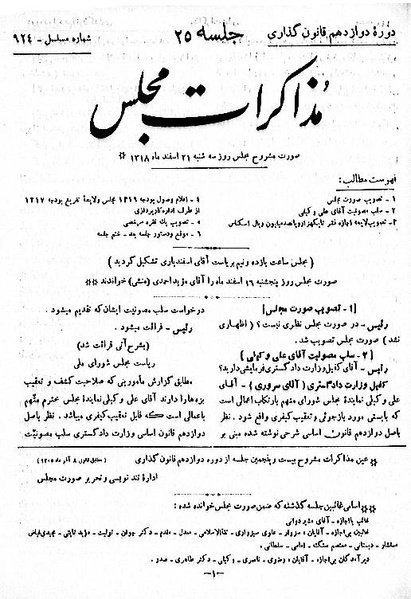 دوره دوازدهم قانون گذاری
جلسه ۲۵
شماره مسلسل - ۹۲۴
مذاکرات مجلس
صورت مشروح مجلس روز سه شنبه ۲۱ اسفند ماه ۱۳۱۸ **
فهرست مطالب:
۱ - تصویب صورت مجلس
۲ - سلب مصونیت آقای علی وکیلی
۳ - تصویب لایحه اجازه نشر یکهزار و پانصد میلیون ریال اسکناس
۴ - اعلام وصول بودجه ۱۳۱۹ مجلس ولایحه تفریغ بودجه ۱۳۱۷
از طرف اداره کارپردازی
۵ - تصویب یک فقره مرخصی
۶ - موقع و دستور جلسه بعد - ختم جلسه
( مجلس ساعت یازده و نیم بریاست آقای اسفندیاری تشکیل گردید )
صورت مجلس روز پنجشنبه ۱۶ اسفند ماه را آقای مؤید احمدی (منشی) خواندند
[۱ - تصویب صورت مجلس]
رئیس - در صورت مجلس نظری نیست؟ ( اظهاری
نشد ) صورت مجلس تصویب شد.
[۲ - سلب مصونیت آقای علی وکیلی]
رئیس - آقای کفیل وزارت دادگستری فرمایشی دارید؟
کفیل وزارت دادگستری (آقای سروری) - آقای
علی وکیلی نمایندهٔ مجلس شورای متهم بارتکاب اعمالی است
که بایستی مورد بازجوئی و تعقیب کیفری واقع شود. نظر
باصل دوازدهم قانون اساسی شرحی نوشته شده مبنی بر
درخواست سلب مصونیت ایشان که تقدیم میشود.
رئیس - قرائت میشود.
(بشرح آتی قرائت شد)
ریاست مجلس شورای ملی
مطابق گزارش مأمورینی که صلاحیت کشف و تعقیب
بزه‌ها را دارند آقای علی وکیلی نمایندهٔ مجلس محترم متهم
باعمالی است که قابل تعقیب کیفری میباشد. نظر باصل
دوازدهم قانون اساسی وزارت دادگستری سلب مصونیت
عین مذاکرات مشروح بیست و پنجمین جلسه از دوره دوازدهم قانون گذاری
اداره تند نویسی و تحریر صورت مجلس
اسامی غائبین جلسه گذشته که ضمن صورت مجلس خوانده شده:
غائب با اجازه - آقای مشیردوانی
غائبین بی‌اجازه - آقایان:
دیرآمدگان بی‌اجازه - آقایان: ناصری - وکیلی - دکتر طاهری - صدر.
-۱-